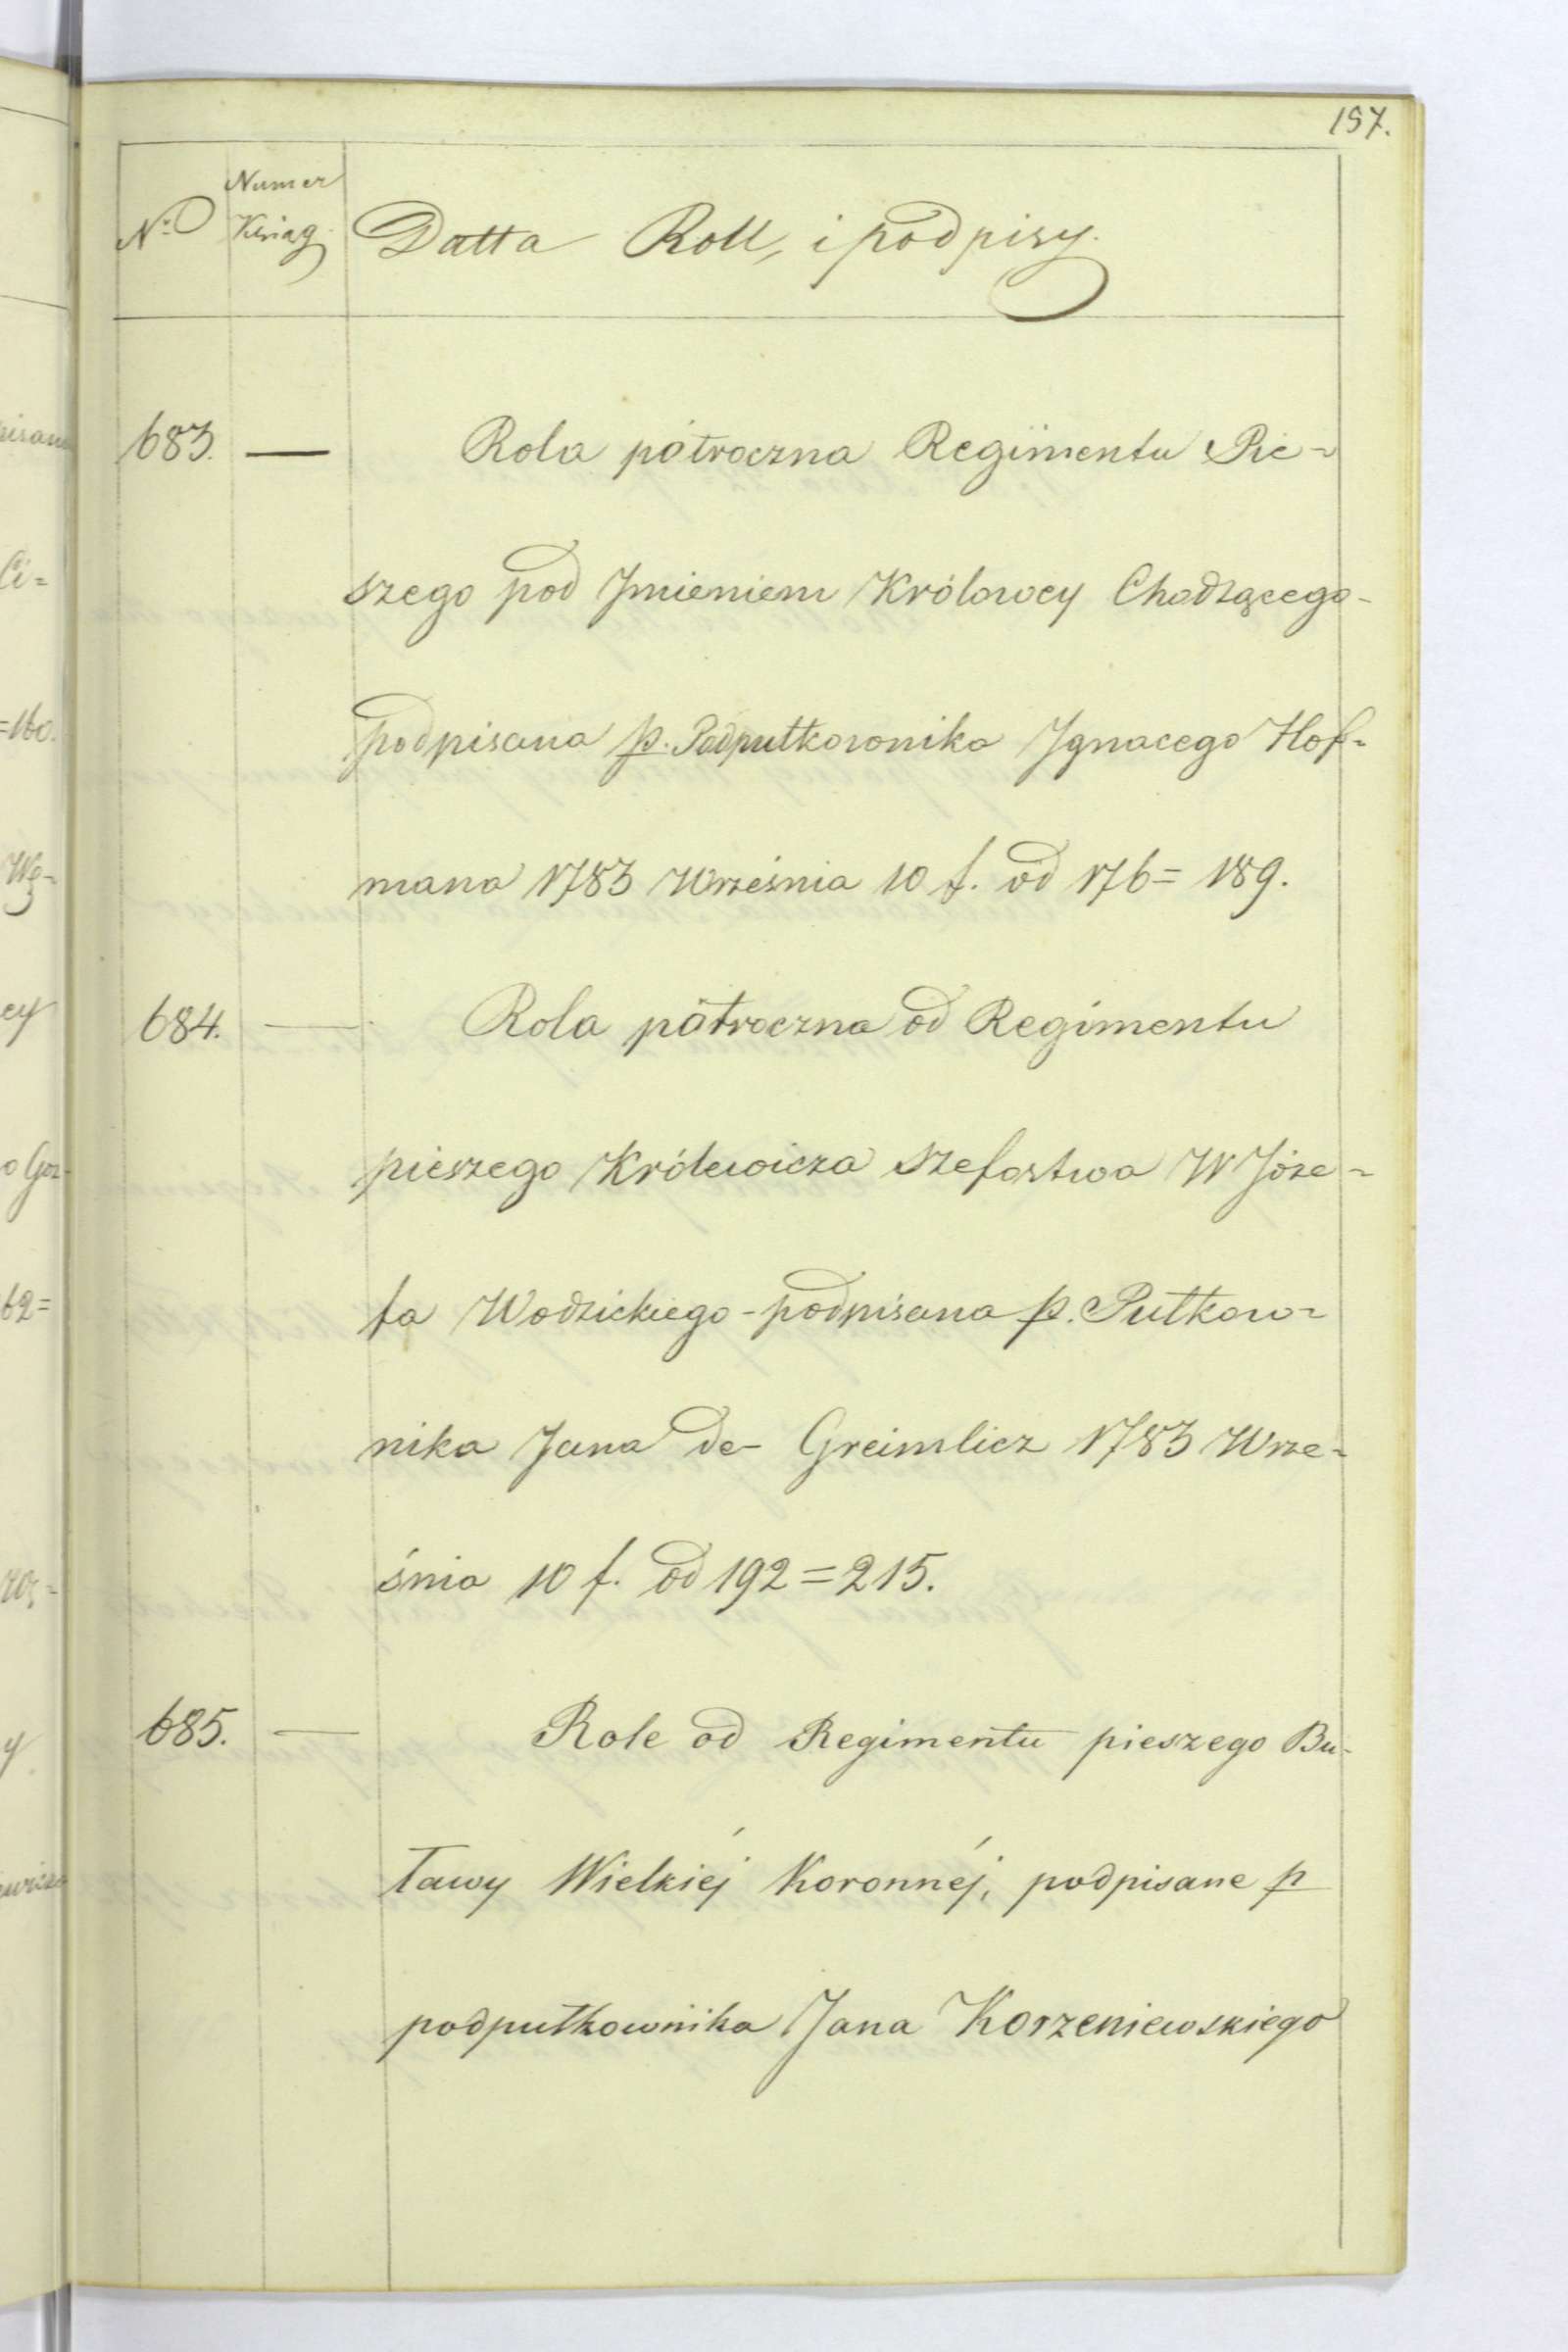 157.
Numer
No Książ. Datta Roll, i podpisy.
683. — Rola półroczna Regimentu Pie=
szego pod Jmieniem Królowey Chodzącego-
podpisana p. Podpułkownika Jgnacego Hof=
mana 1783 Września 10 f. od 176= 189.
684. — Rola półroczna od Regimentu
pieszego Królewicza Szefostwa W Józe=
fa Wodzickiego - podpisana p. Pułkow=
nika Jana de- Greimlicz 1783 Wrze=
śnia 10 f. od 192=215.
685. — Role od Regimentu pieszego Bu-
ławy Wielkiéj Koronnéj, podpisane p
podpułkownika Jana Korzeniewskiego
pisana
Ci=
=160.
ey
62=
y